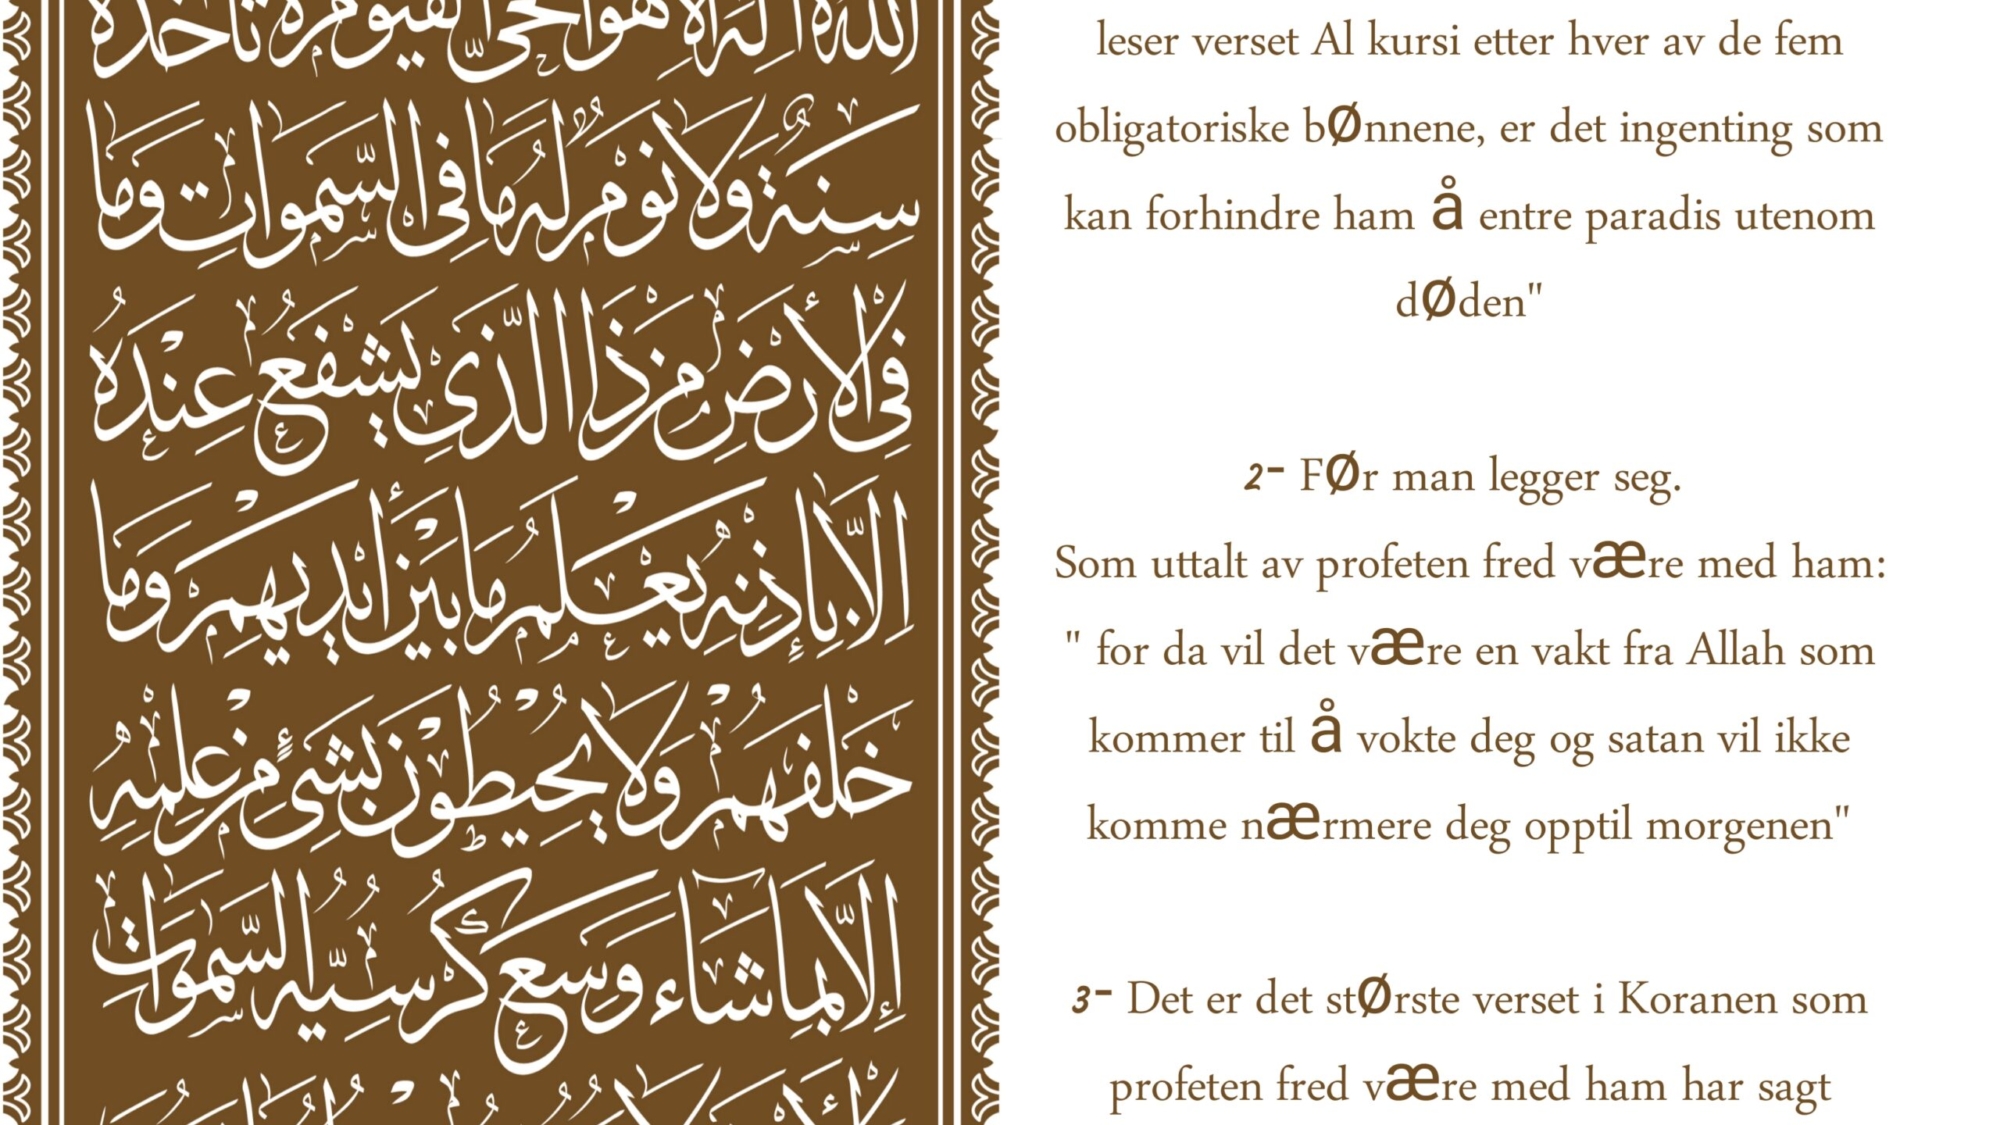 الله لا إله إلا هو الحي القيوم لا تأخذه
سِنَةٌ وَلَا نَوْمٌ لَهُ مَا فِي السَّمٰوَاتِ وَمَا
فِي الْأَرْضِ مَنْ ذَا الَّذِي يَشْفَعُ عِنْدَهُ
إِلَّا بِإِذْنِهِ يَعْلَمُ مَا بَيْنَ أَيْدِيهِمْ وَمَا
خَلْفَهُمْ وَلَا يُحِيطُونَ بِشَيْءٍ مِنْ عِلْمِهِ
إِلَّا بِمَا شَاءَ وَسِعَ كُرْسِيُّهُ السَّمٰوَاتِ
leser verset Al kursi etter hver av de fem
obligatoriske bØnnene, er det ingenting som
kan forhindre ham å entre paradis utenom
dØden"
2- FØr man legger seg.
Som uttalt av profeten fred være med ham:
" for da vil det være en vakt fra Allah som
kommer til å vokte deg og satan vil ikke
komme nærmere deg opptil morgenen"
3- Det er det stØrste verset i Koranen som
profeten fred være med ham har sagt